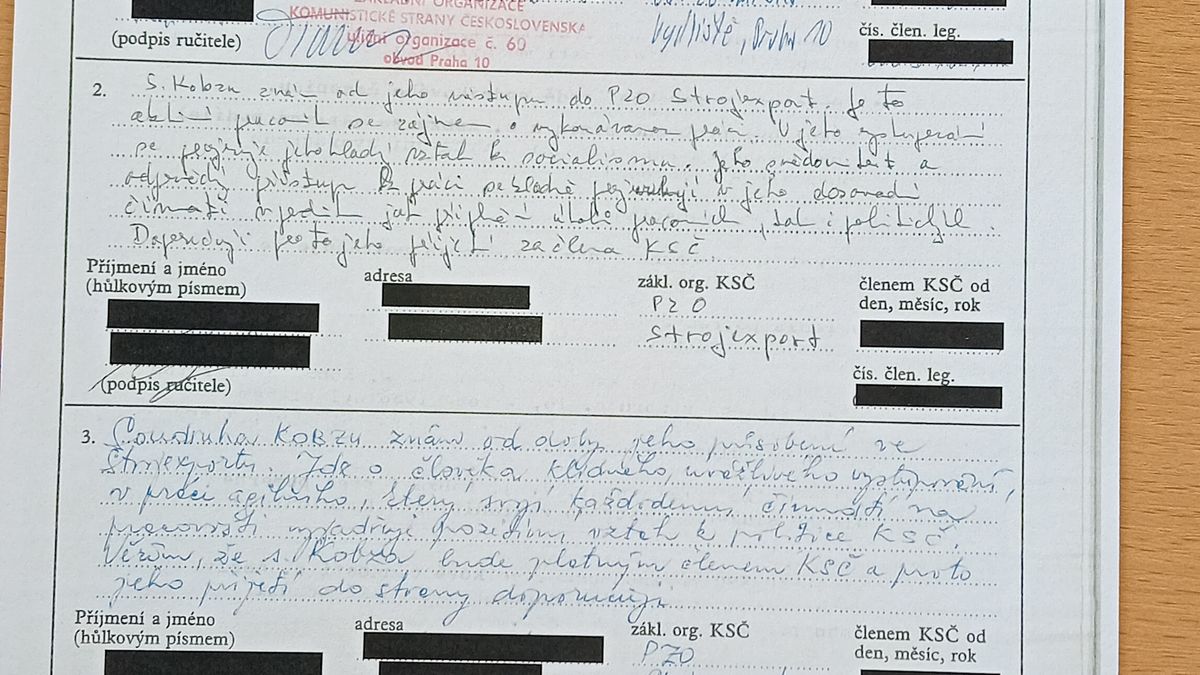 ZÁKLADNÍ ORGANIZACE
KOMUNISTICKÉ STRANY ČESKOSLOVENSKA
uliční organizace č. 60
obvod Praha 10
(podpis ručitele)
Praha 10
čís. člen. leg.
2. S. Kobzu znám od jeho nástupu do PZO Strojexport. Je to
aktivní pracovník se zájmem o vykonávanou práci. V jeho vystupování
se projevuje jeho kladný vztah k socialismu. Jeho a
přístup k práci se kladně v jeho dosavadní
činnosti jak při plnění úkolů pracovních, tak i politických.
Doporučuji proto jeho přijetí za člena KSČ.
Příjmení a jméno
(hůlkovým písmem)
adresa
zákl. org. KSČ
PZO
Strojexport
členem KSČ od
den, měsíc, rok
(podpis ručitele)
čís. člen. leg.
3. Soudruha KOBZU znám od doby jeho působení ve
Strojexportu. Jde o člověka kladného, vystupování,
v práci agilního, který svojí každodenní činností na
pracovišti vyjadřuje pozitivní vztah k politice KSČ.
Věřím, že s. Kobza bude platným členem KSČ a proto
jeho přijetí do strany doporučuji.
Příjmení a jméno
(hůlkovým písmem)
adresa
zákl. org. KSČ
PZO
členem KSČ od
den, měsíc, rok